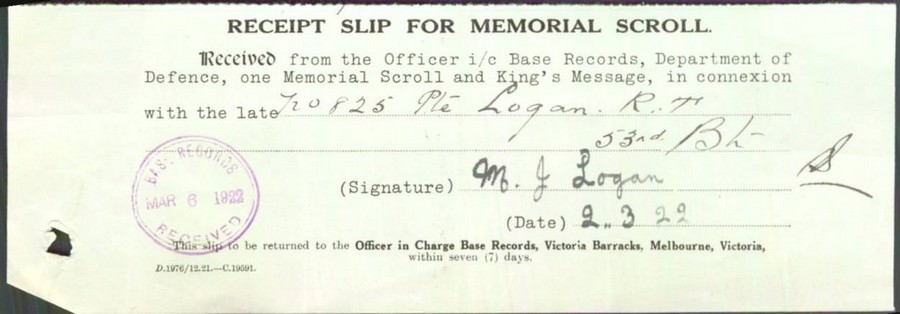 RECEIPT SLIP FOR MEMORIAL SCROLL.
Received from the Officer i/c Base Records, Department of
Defence, one Memorial Scroll and King's Message, in connexion
with the late No 825 Pte Logan. R. T
53rd. Btn
(Signature) M. J Logan
(Date) 2.3 22
BASE RECORDS
MAR 6 1922
RECEIVED
This slip to be returned to the Officer in Charge Base Records, Victoria Barracks, Melbourne, Victoria,
within seven (7) days.
D.1976/12.21.—C.19591.